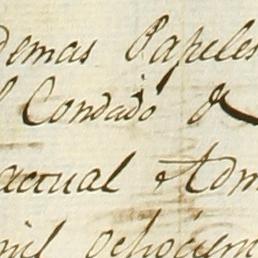 demas Papeles
Condado de
actual Adm
mil ochocien